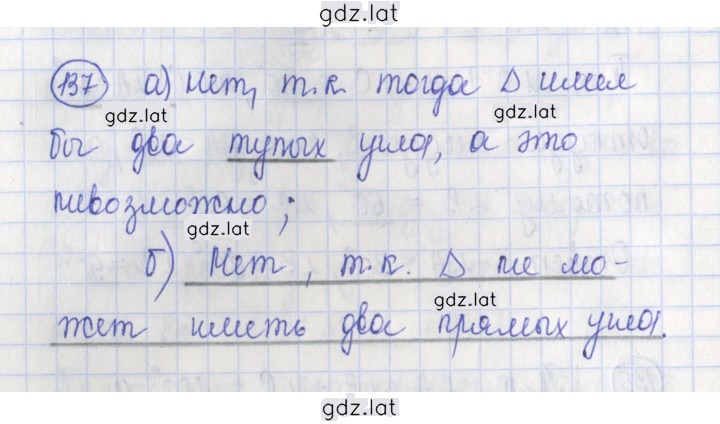 gdz.lat
137 а) Нет, т.к. тогда Δ имел
gdz.lat gdz.lat
бы два тупых угла, а это
невозможно;
gdz.lat
б) Нет, т.к. Δ не мо-
gdz.lat
жет иметь два прямых угла.
gdz.lat